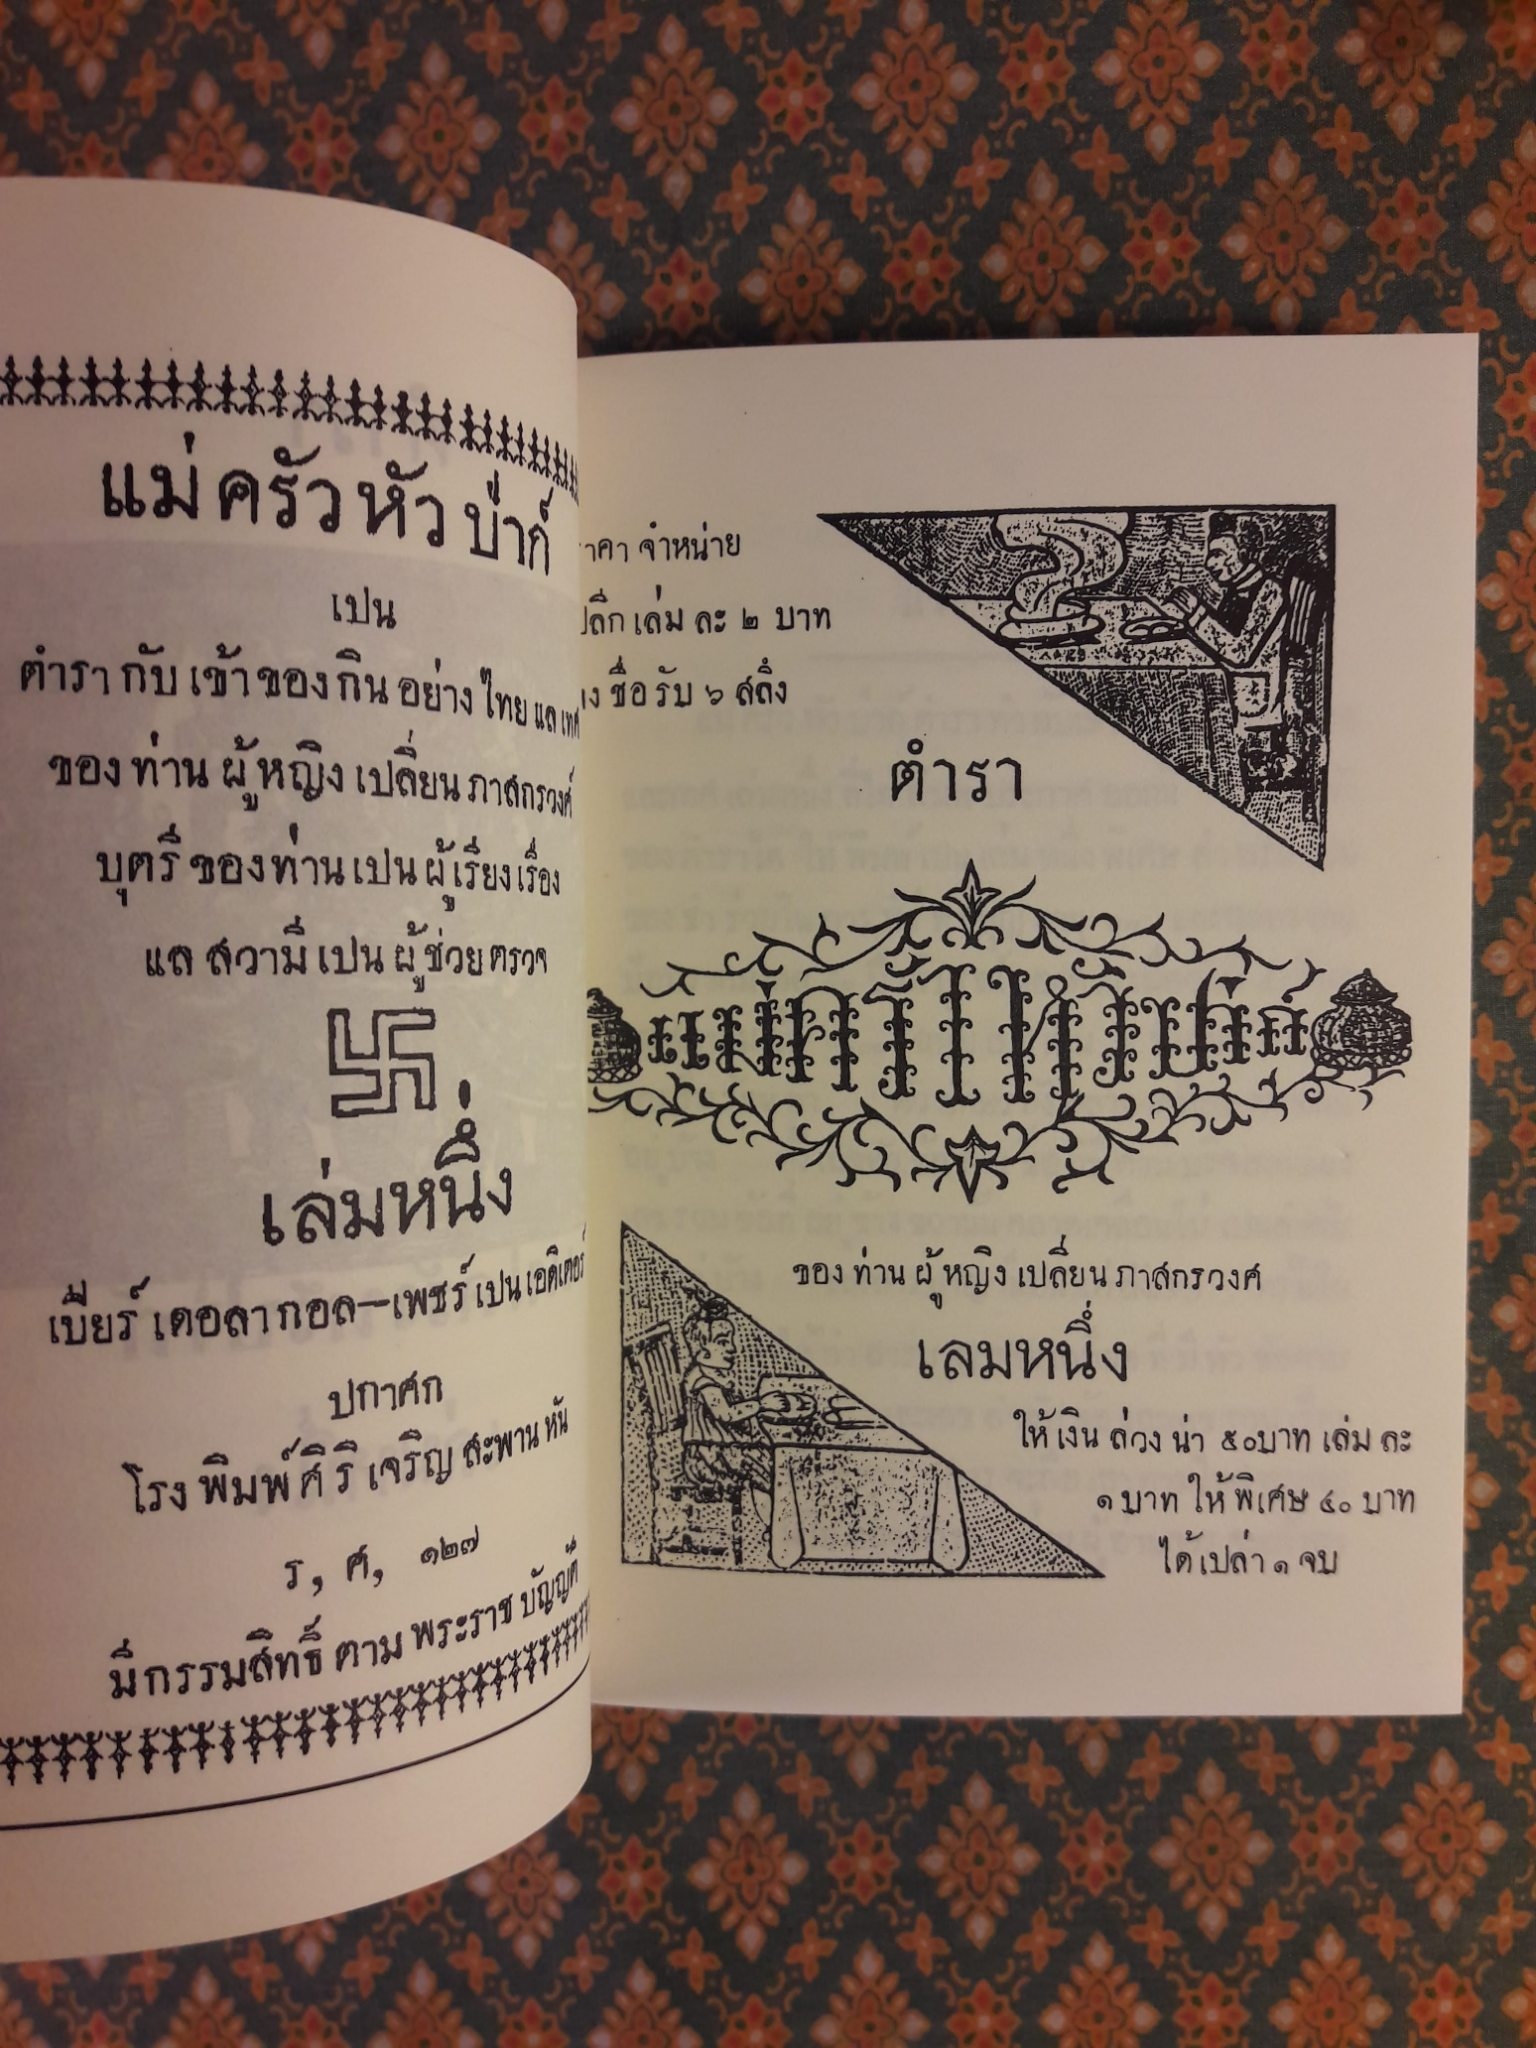 แม่ครัวหัวป่าก์
เปน
ตำรากับเข้าของกินอย่างไทยแลเทศ
ของท่านผู้หญิงเปลี่ยนภาสกรวงศ์
บุตรีของท่านเปนผู้เรียงเรื่อง
แลสวามีเปนผู้ช่วยตรวจ
เล่มหนึ่ง
เบียร์ เดอลากอล—เพชร์ เปนเอดิเตอร์
ปกาศก
โรงพิมพ์ศิริเจริญ สะพานหัน
ร, ศ, ๑๒๗
มีกรรมสิทธิ์ตามพระราชบัญญัติ
าคา จำหน่าย
ปลีกเล่มละ ๒ บาท
งชื่อรับ ๖ สลึง
ตำรา
แม่ครัวหัวป่าก์
ของท่านผู้หญิงเปลี่ยนภาสกรวงศ
เลมหนึ่ง
ให้เงินล่วงน่า ๕๐บาท เล่มละ
๑ บาท ให้พิเศษ ๔๐ บาท
ได้เปล่า ๑ จบ